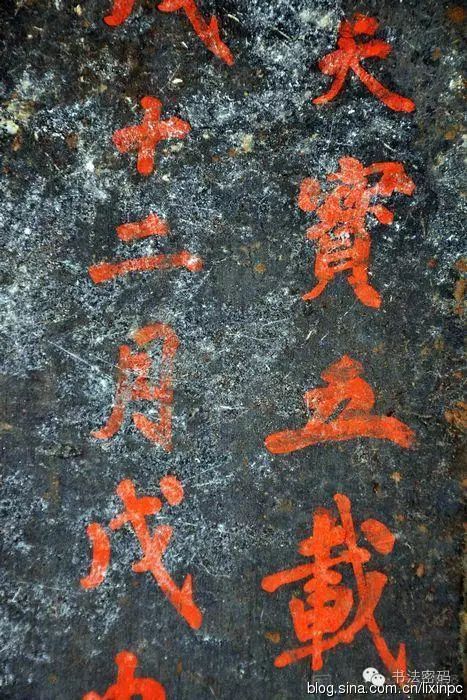 天寶五載
十二月戊
书法密码
blog.sina.com.cn/lixinpc